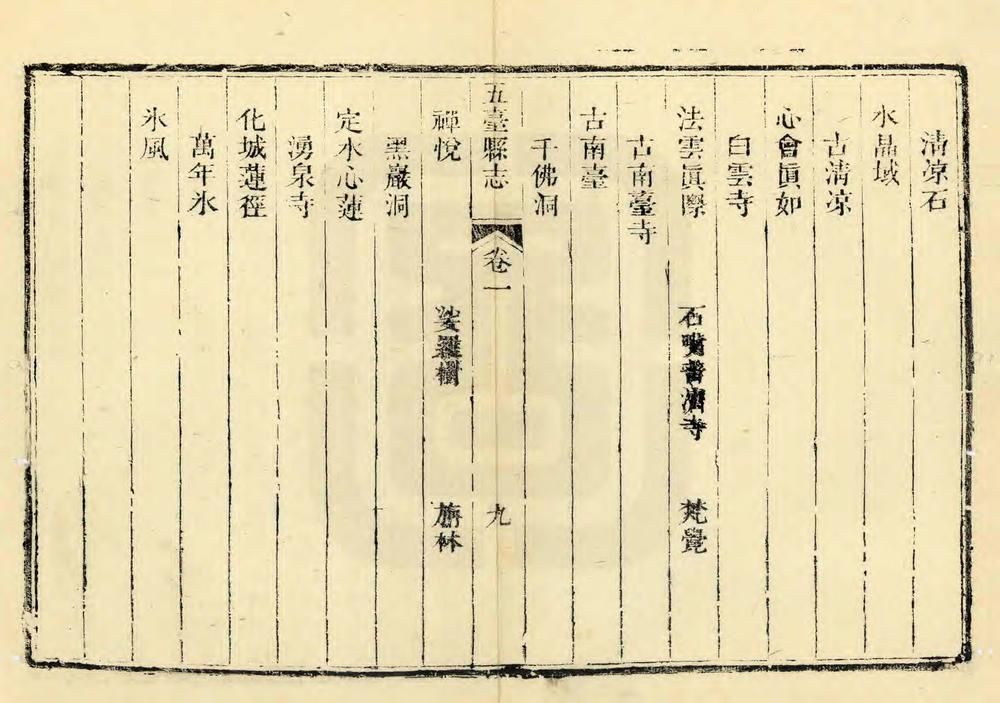 清凉石
水晶域
古清凉
心會真如
白雲寺
法雲真際 石嘴普濟寺 梵覺
古南臺寺
古南臺
千佛洞
五臺縣志 卷一 九
禪悅 娑羅樹 旃林
黑巖洞
定水心蓮
湧泉寺
化城蓮徑
萬年氷
氷風